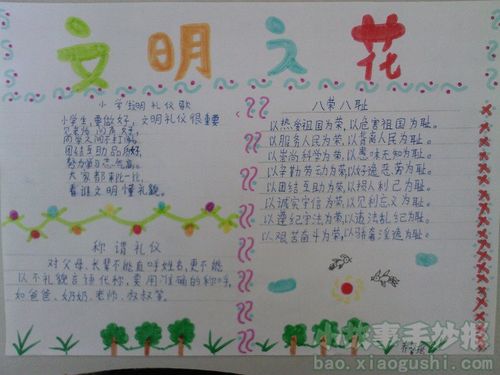 文明之花
小学生文明礼仪歌
小学生,要做好,文明礼仪很重要
见老师 问声好,
同学又问不打闹。
团结互助品质好,
努力学习志气高。
大家都来比一比,
看谁文明懂礼貌。
称谓礼仪
对父母、长辈不能直呼姓名,更不能
以不礼貌言语代称,要用准确的称呼,
如爸爸、奶奶、老师、叔叔等。
八荣八耻
以热爱祖国为荣,以危害祖国为耻。
以服务人民为荣,以背离人民为耻。
以崇尚科学为荣,以愚昧无知为耻。
以辛勤劳动为荣,以好逸恶劳为耻。
以团结互助为荣,以损人利己为耻。
以诚实守信为荣,以见利忘义为耻。
以遵纪守法为荣,以违法乱纪为耻。
以艰苦奋斗为荣,以骄奢淫逸为耻。
小小孩手抄报
bao.xiaogushi.com